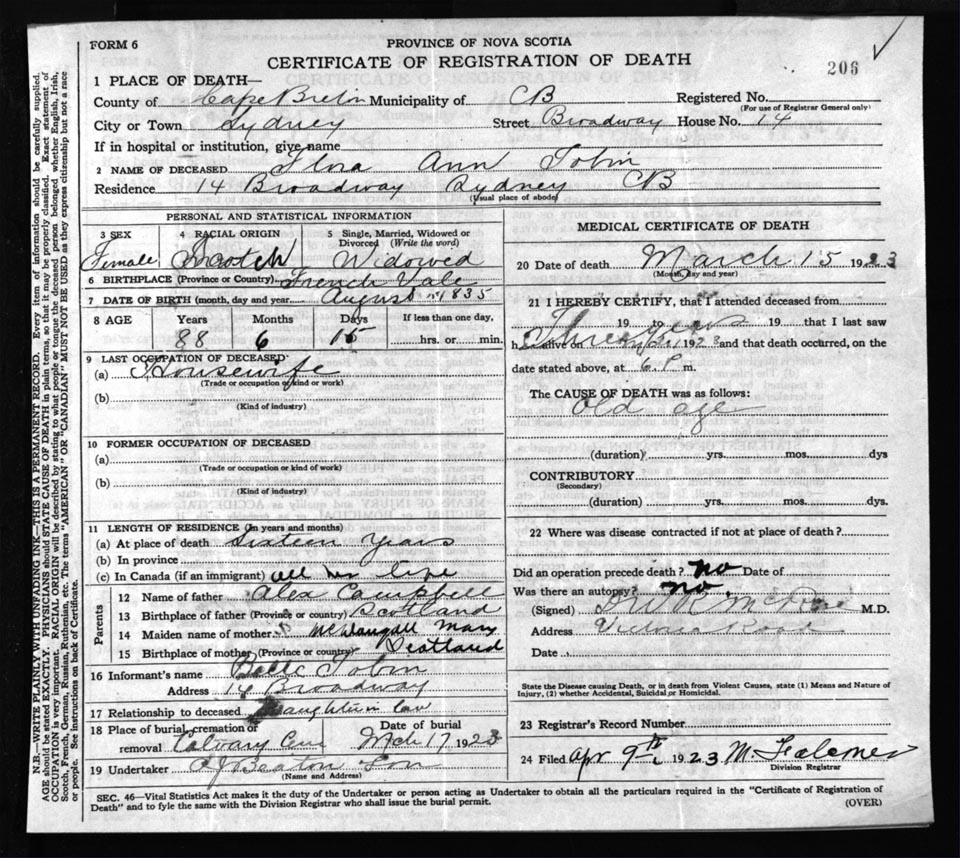 FORM 6
PROVINCE OF NOVA SCOTIA
CERTIFICATE OF REGISTRATION OF DEATH
206
1 PLACE OF DEATH—
County of Cape Breton Municipality of CB Registered No.
(For use of Registrar General only)
City or Town Sydney Street Broadway House No. 14
If in hospital or institution, give name
2 NAME OF DECEASED Flora Ann Tobin
Residence 14 Broadway Sydney CB
(Usual place of abode)
PERSONAL AND STATISTICAL INFORMATION
3 SEX 4 RACIAL ORIGIN 5 Single, Married, Widowed or Divorced (Write the word)
Female Scotch Widowed
6 BIRTHPLACE (Province or Country) French Vale
7 DATE OF BIRTH (month, day and year) August 1835
8 AGE Years Months Days If less than one day,
88 6 15 hrs. or min.
9 LAST OCCUPATION OF DECEASED
(a) Housewife
(Trade or occupation or kind or work)
(b)
(Kind of industry)
10 FORMER OCCUPATION OF DECEASED
(a)
(Trade or occupation or kind of work)
(b)
(Kind of industry)
11 LENGTH OF RESIDENCE (In years and months)
(a) At place of death Sixteen Years
(b) In province
(c) In Canada (if an immigrant) all her life
Parents
12 Name of father Alex Campbell
13 Birthplace of father (Province or country) Scotland
14 Maiden name of mother McDougall Mary
15 Birthplace of mother (Province or country) Scotland
16 Informant's name Belle Tobin
Address 14 Broadway
17 Relationship to deceased daughter in law
18 Place of burial, cremation or removal Calvary Cem Date of burial Mch 17 1923
19 Undertaker A J Beaton Son
(Name and Address)
MEDICAL CERTIFICATE OF DEATH
20 Date of death March 15 1923
(Month, day and year)
21 I HEREBY CERTIFY, that I attended deceased from
Three years 19 19 that I last saw
h alive on 1923 and that death occurred, on the
date stated above, at 6 P. m.
The CAUSE OF DEATH was as follows:
Old age
(duration) yrs. mos. dys
CONTRIBUTORY
(Secondary)
(duration) yrs. mos. dys.
22 Where was disease contracted if not at place of death?
Did an operation precede death? No Date of
Was there an autopsy? no.
(Signed) M.D.
Address Victoria Road
Date
State the Disease causing Death, or in death from Violent Causes, state (1) Means and Nature of Injury, (2) whether Accidental, Suicidal or Homicidal.
23 Registrar's Record Number
24 Filed Apr 9th 1923
Division Registrar
SEC. 46—Vital Statistics Act makes it the duty of the Undertaker or person acting as Undertaker to obtain all the particulars required in the "Certificate of Registration of
Death" and to fyle the same with the Division Registrar who shall issue the burial permit.
(OVER)
N.B.—WRITE PLAINLY WITH UNFADING INK—THIS IS A PERMANENT RECORD. Every item of information should be carefully supplied.
AGE should be stated EXACTLY. PHYSICIANS should STATE CAUSE OF DEATH in plain terms, so that it may be properly classified. Exact statement of
OCCUPATION is very important. RACIAL ORIGIN will be described by stating to what people or tongue the deceased person belonged, whether English, Irish,
Scotch, French, German, Russian, Ruthenian, etc. The terms "AMERICAN" OR "CANADIAN" MUST NOT BE USED as they express citizenship but not a race
or people. See instructions on back of Certificate.